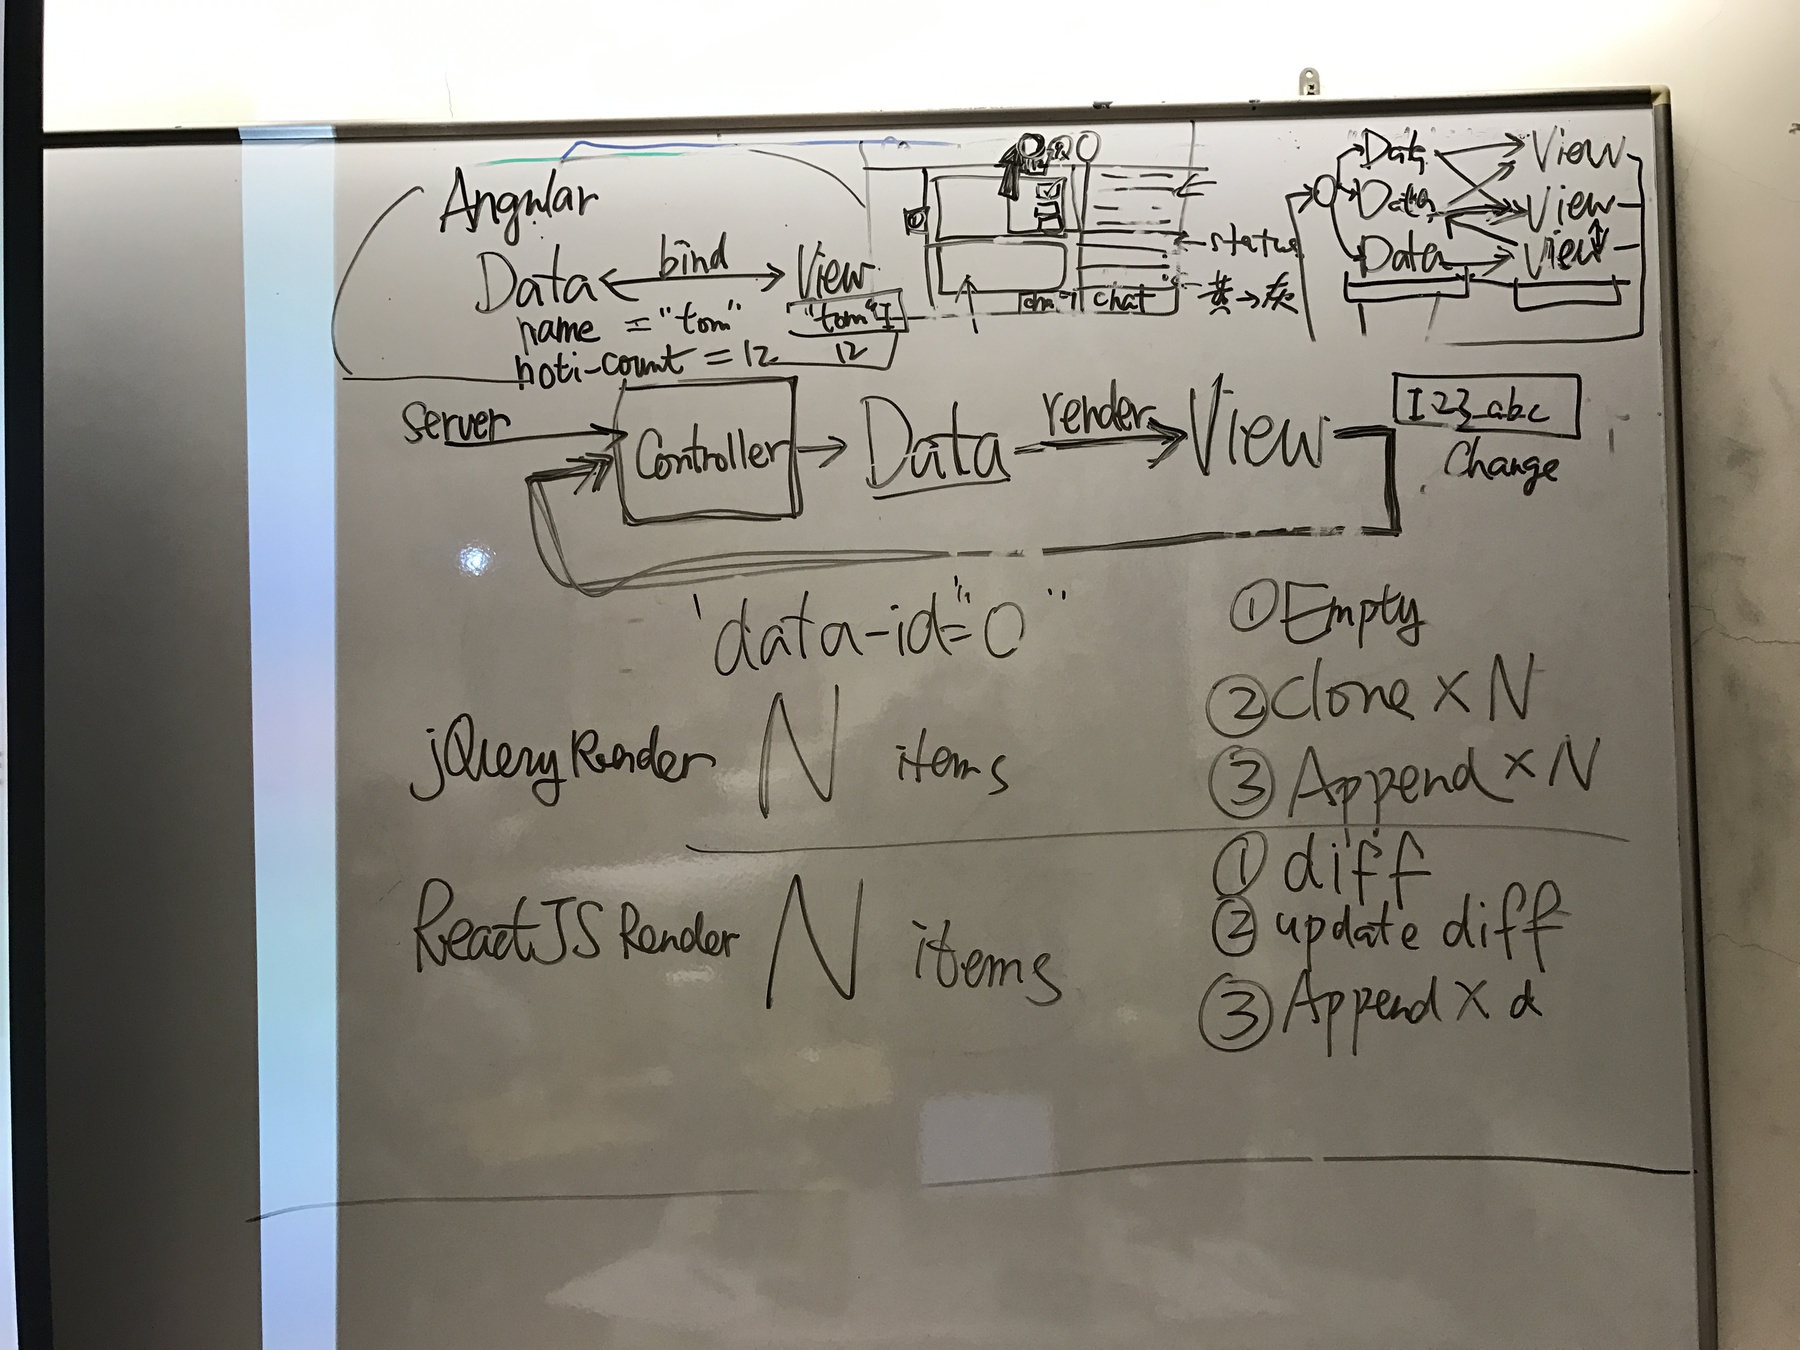 Angular
Data bind View
name = "tom" "tom"
noti-count = 12 12
chat
status
黄→灰
Data View
Data View
Data View
server Controller Data render View
123_abc
Change
'data-id="0"
jQuery Render N items
① Empty
② Clone × N
③ Append × N
ReactJS Render N items
① diff
② update diff
③ Append × d